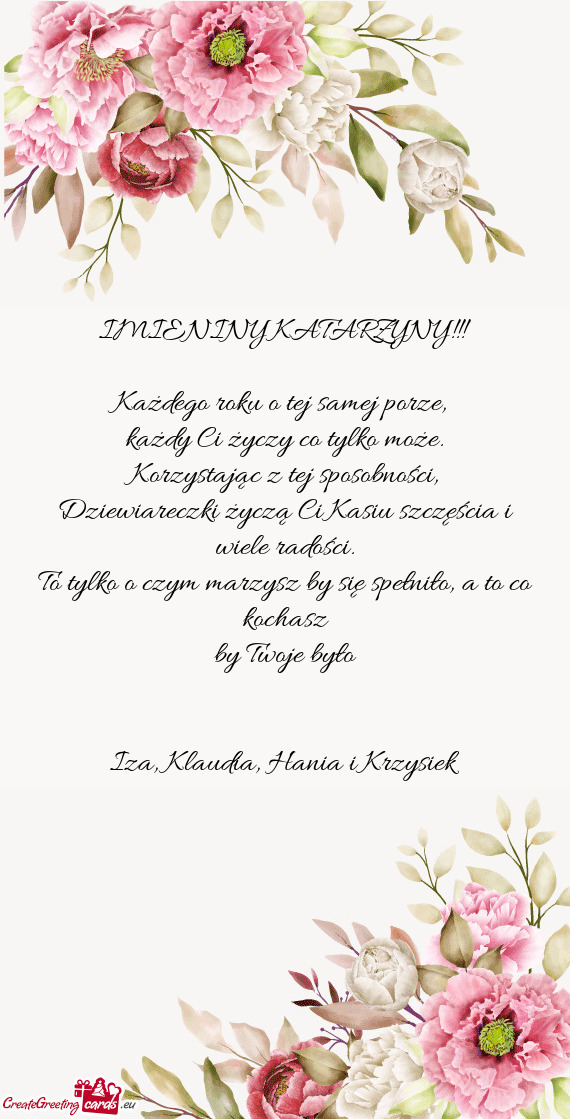 IMIENINY KATARZYNY!!!
Każdego roku o tej samej porze,
każdy Ci życzy co tylko może.
Korzystając z tej sposobności,
Dziewiareczki życzą Ci Kasiu szczęścia i
wiele radości.
To tylko o czym marzysz by się spełniło, a to co
kochasz
by Twoje było
Iza, Klaudia, Hania i Krzysiek
CreateGreeting cards .eu